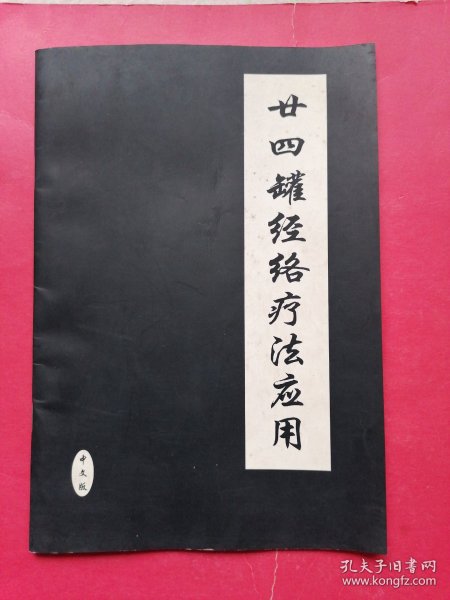 廿四罐经络疗法应用
中文版
孔夫子旧书网
www.kongfz.com